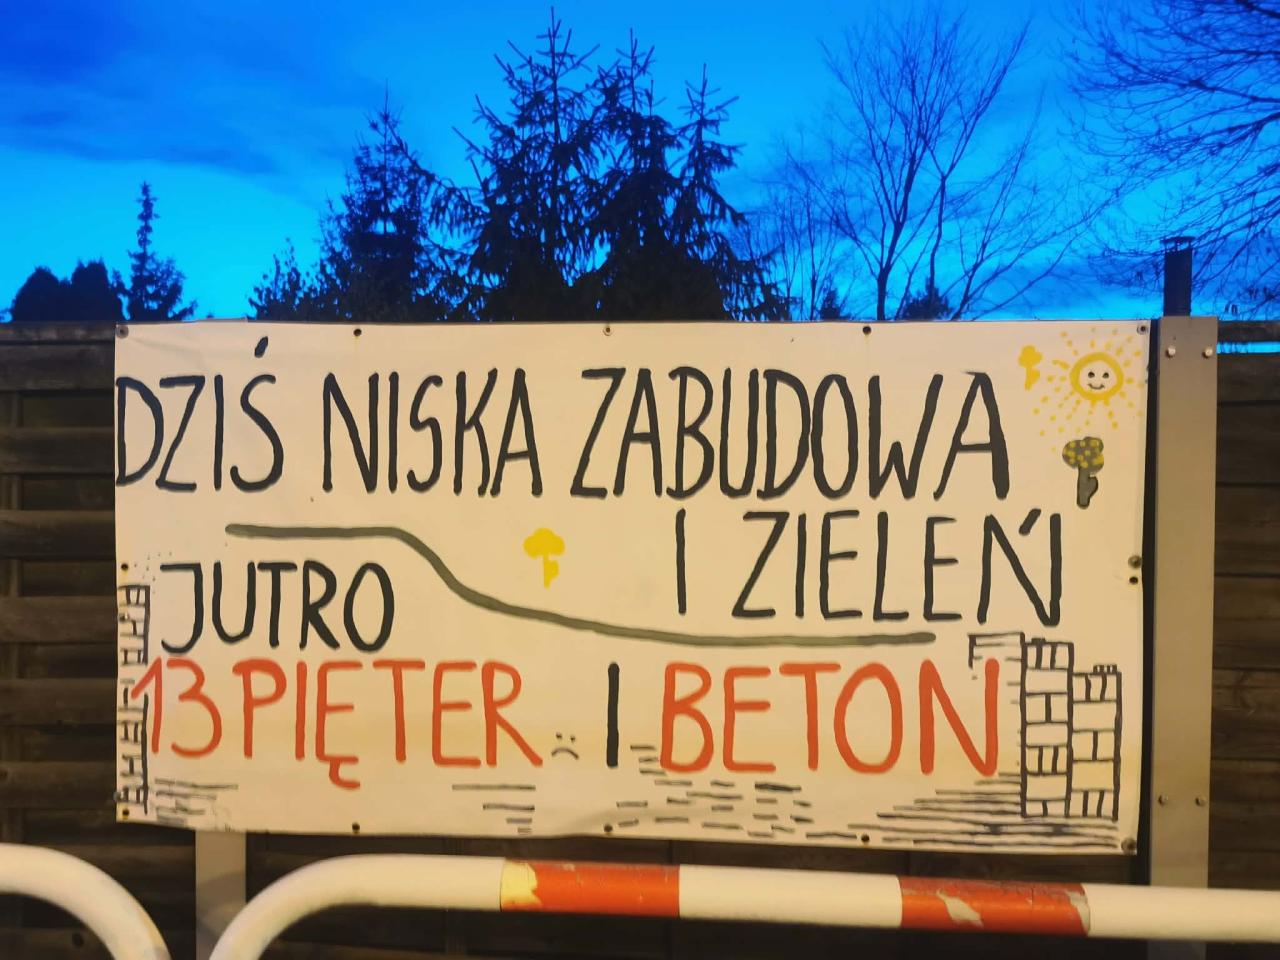 DZIŚ NISKA ZABUDOWA
I ZIELEŃ
JUTRO
13 PIĘTER I BETON